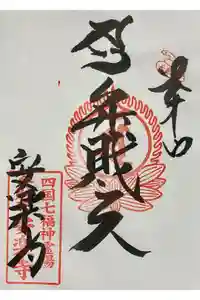 奉拝
弁財天
四国七福神霊場
安楽寺